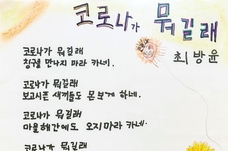 코로나가 뭐길래
최방윤
코로나가 뭐길래
친구를 만나지 마라 카네.
코로나가 뭐길래
보고시픈 새끼들도 몬보게 하네.
코로나가 뭐길래
마을해간에도 오지마라 카네.
코로나가 뭐길래